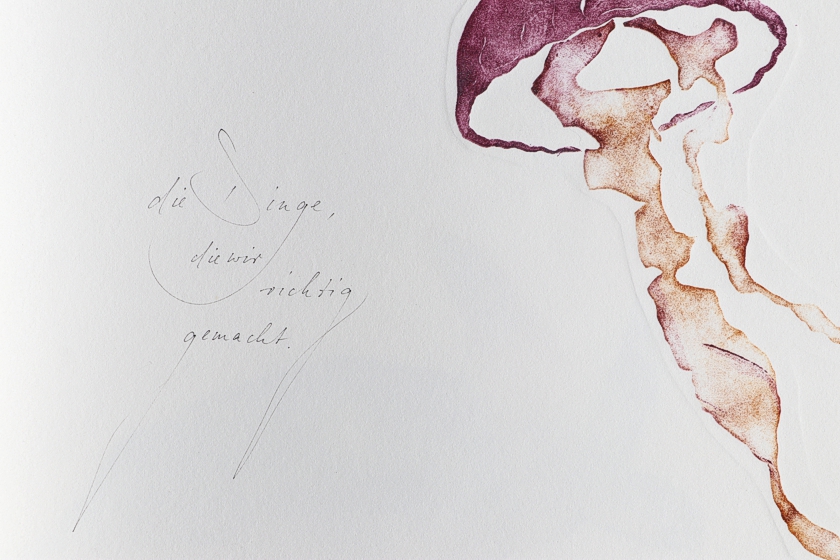 die Dinge,
die wir
richtig
gemacht.